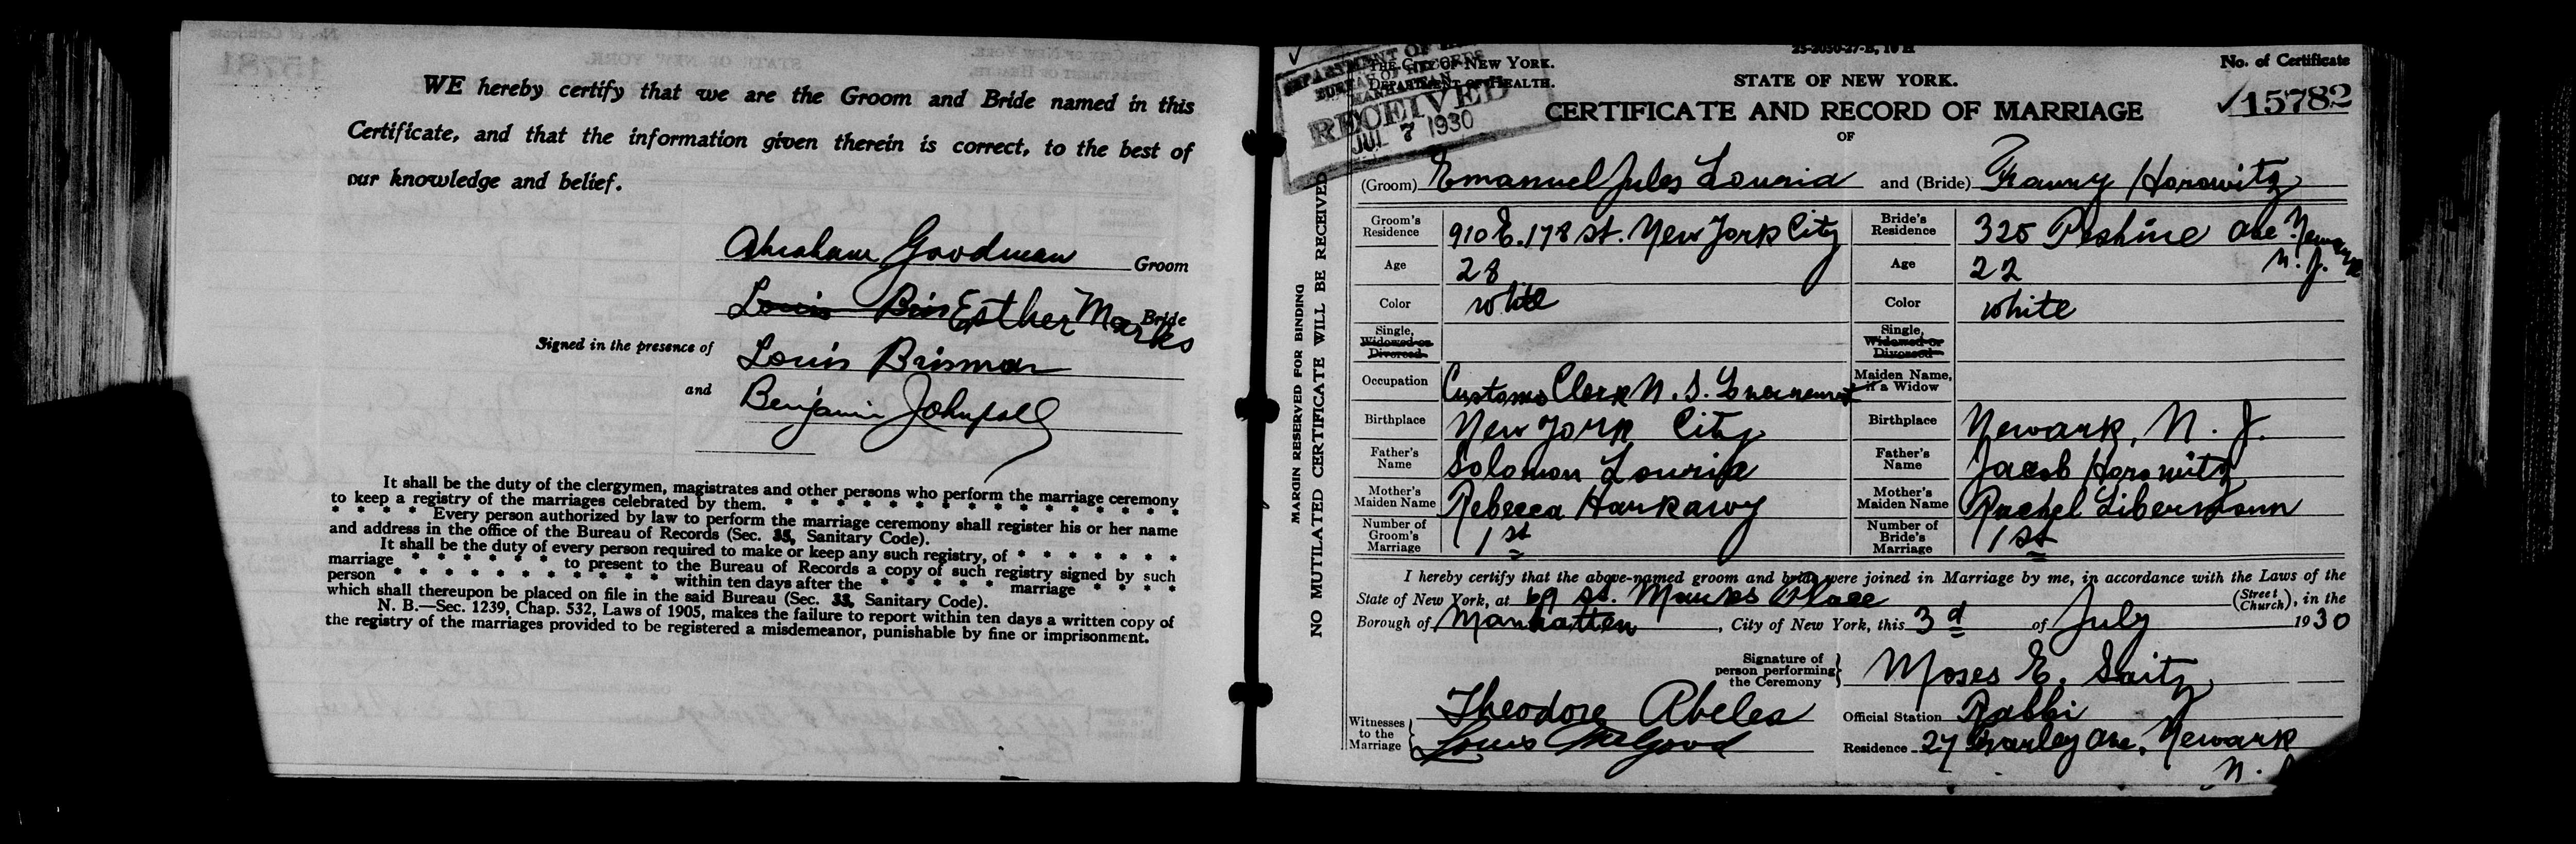 WE hereby certify that we are the Groom and Bride named in this
Certificate, and that the information given therein is correct, to the best of
our knowledge and belief.
Abraham Goodman Groom
Louis Bris Esther Marks Bride
Signed in the presence of Louis Brisman
and Benjamin
It shall be the duty of the clergymen, magistrates and other persons who perform the marriage ceremony
to keep a registry of the marriages celebrated by them. * * * * * * * * * * * * *
* * * * Every person authorized by law to perform the marriage ceremony shall register his or her name
and address in the office of the Bureau of Records (Sec. 33, Sanitary Code).
It shall be the duty of every person required to make or keep any such registry, of * * * * * *
marriage * * * * * * * to present to the Bureau of Records a copy of such registry signed by such
person * * * * * * * * * * * within ten days after the * * * * * marriage * * * *
which shall thereupon be placed on file in the said Bureau (Sec. 33, Sanitary Code).
N. B.—Sec. 1239, Chap. 532, Laws of 1905, makes the failure to report within ten days a written copy of
the registry of the marriages provided to be registered a misdemeanor, punishable by fine or imprisonment.
15781
MARGIN RESERVED FOR BINDING
NO MUTILATED CERTIFICATE WILL BE RECEIVED
DEPARTMENT OF
BUREAU OF RECORDS
MANHATTAN
RECEIVED
JUL 7 1930
25-2050-27-B, 16 H
THE CITY OF NEW YORK.
DEPARTMENT OF HEALTH.
STATE OF NEW YORK.
No. of Certificate
CERTIFICATE AND RECORD OF MARRIAGE
15782
OF
(Groom) Emanuel Jules Louria and (Bride) Fanny Horowitz
Groom's Residence 910 E. 178 St. New York City Bride's Residence 325 Peshine Ave Newark N. J.
Age 28 Age 22
Color white Color white
Single, Widowed or Divorced Single, Widowed or Divorced
Occupation Customs Clerk U. S. Government Maiden Name, if a Widow
Birthplace New York City Birthplace Newark, N. J.
Father's Name Solomon Louria Father's Name Jacob Horowitz
Mother's Maiden Name Rebecca Harkawy Mother's Maiden Name Rachel Libermann
Number of Groom's Marriage 1st Number of Bride's Marriage 1st
I hereby certify that the above-named groom and bride were joined in Marriage by me, in accordance with the Laws of the
State of New York, at 69 St. Marks Place (Street Church), in the
Borough of Manhatten, City of New York, this 3d of July 1930
Signature of person performing the Ceremony Moses E. Saitz
Witnesses to the Marriage Theodore Abeles Official Station Rabbi
Louis Residence 27 Ave, Newark
N.